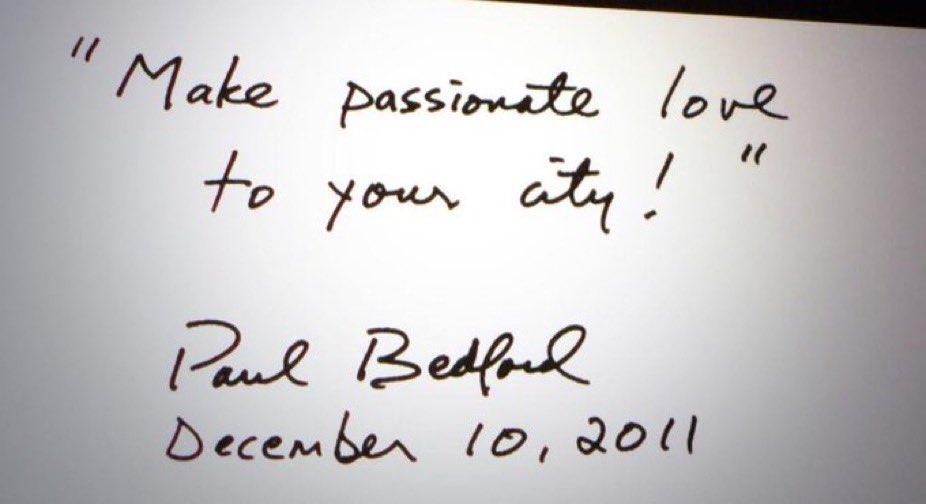 "Make passionate love
to your city!"
Paul Bedford
December 10, 2011